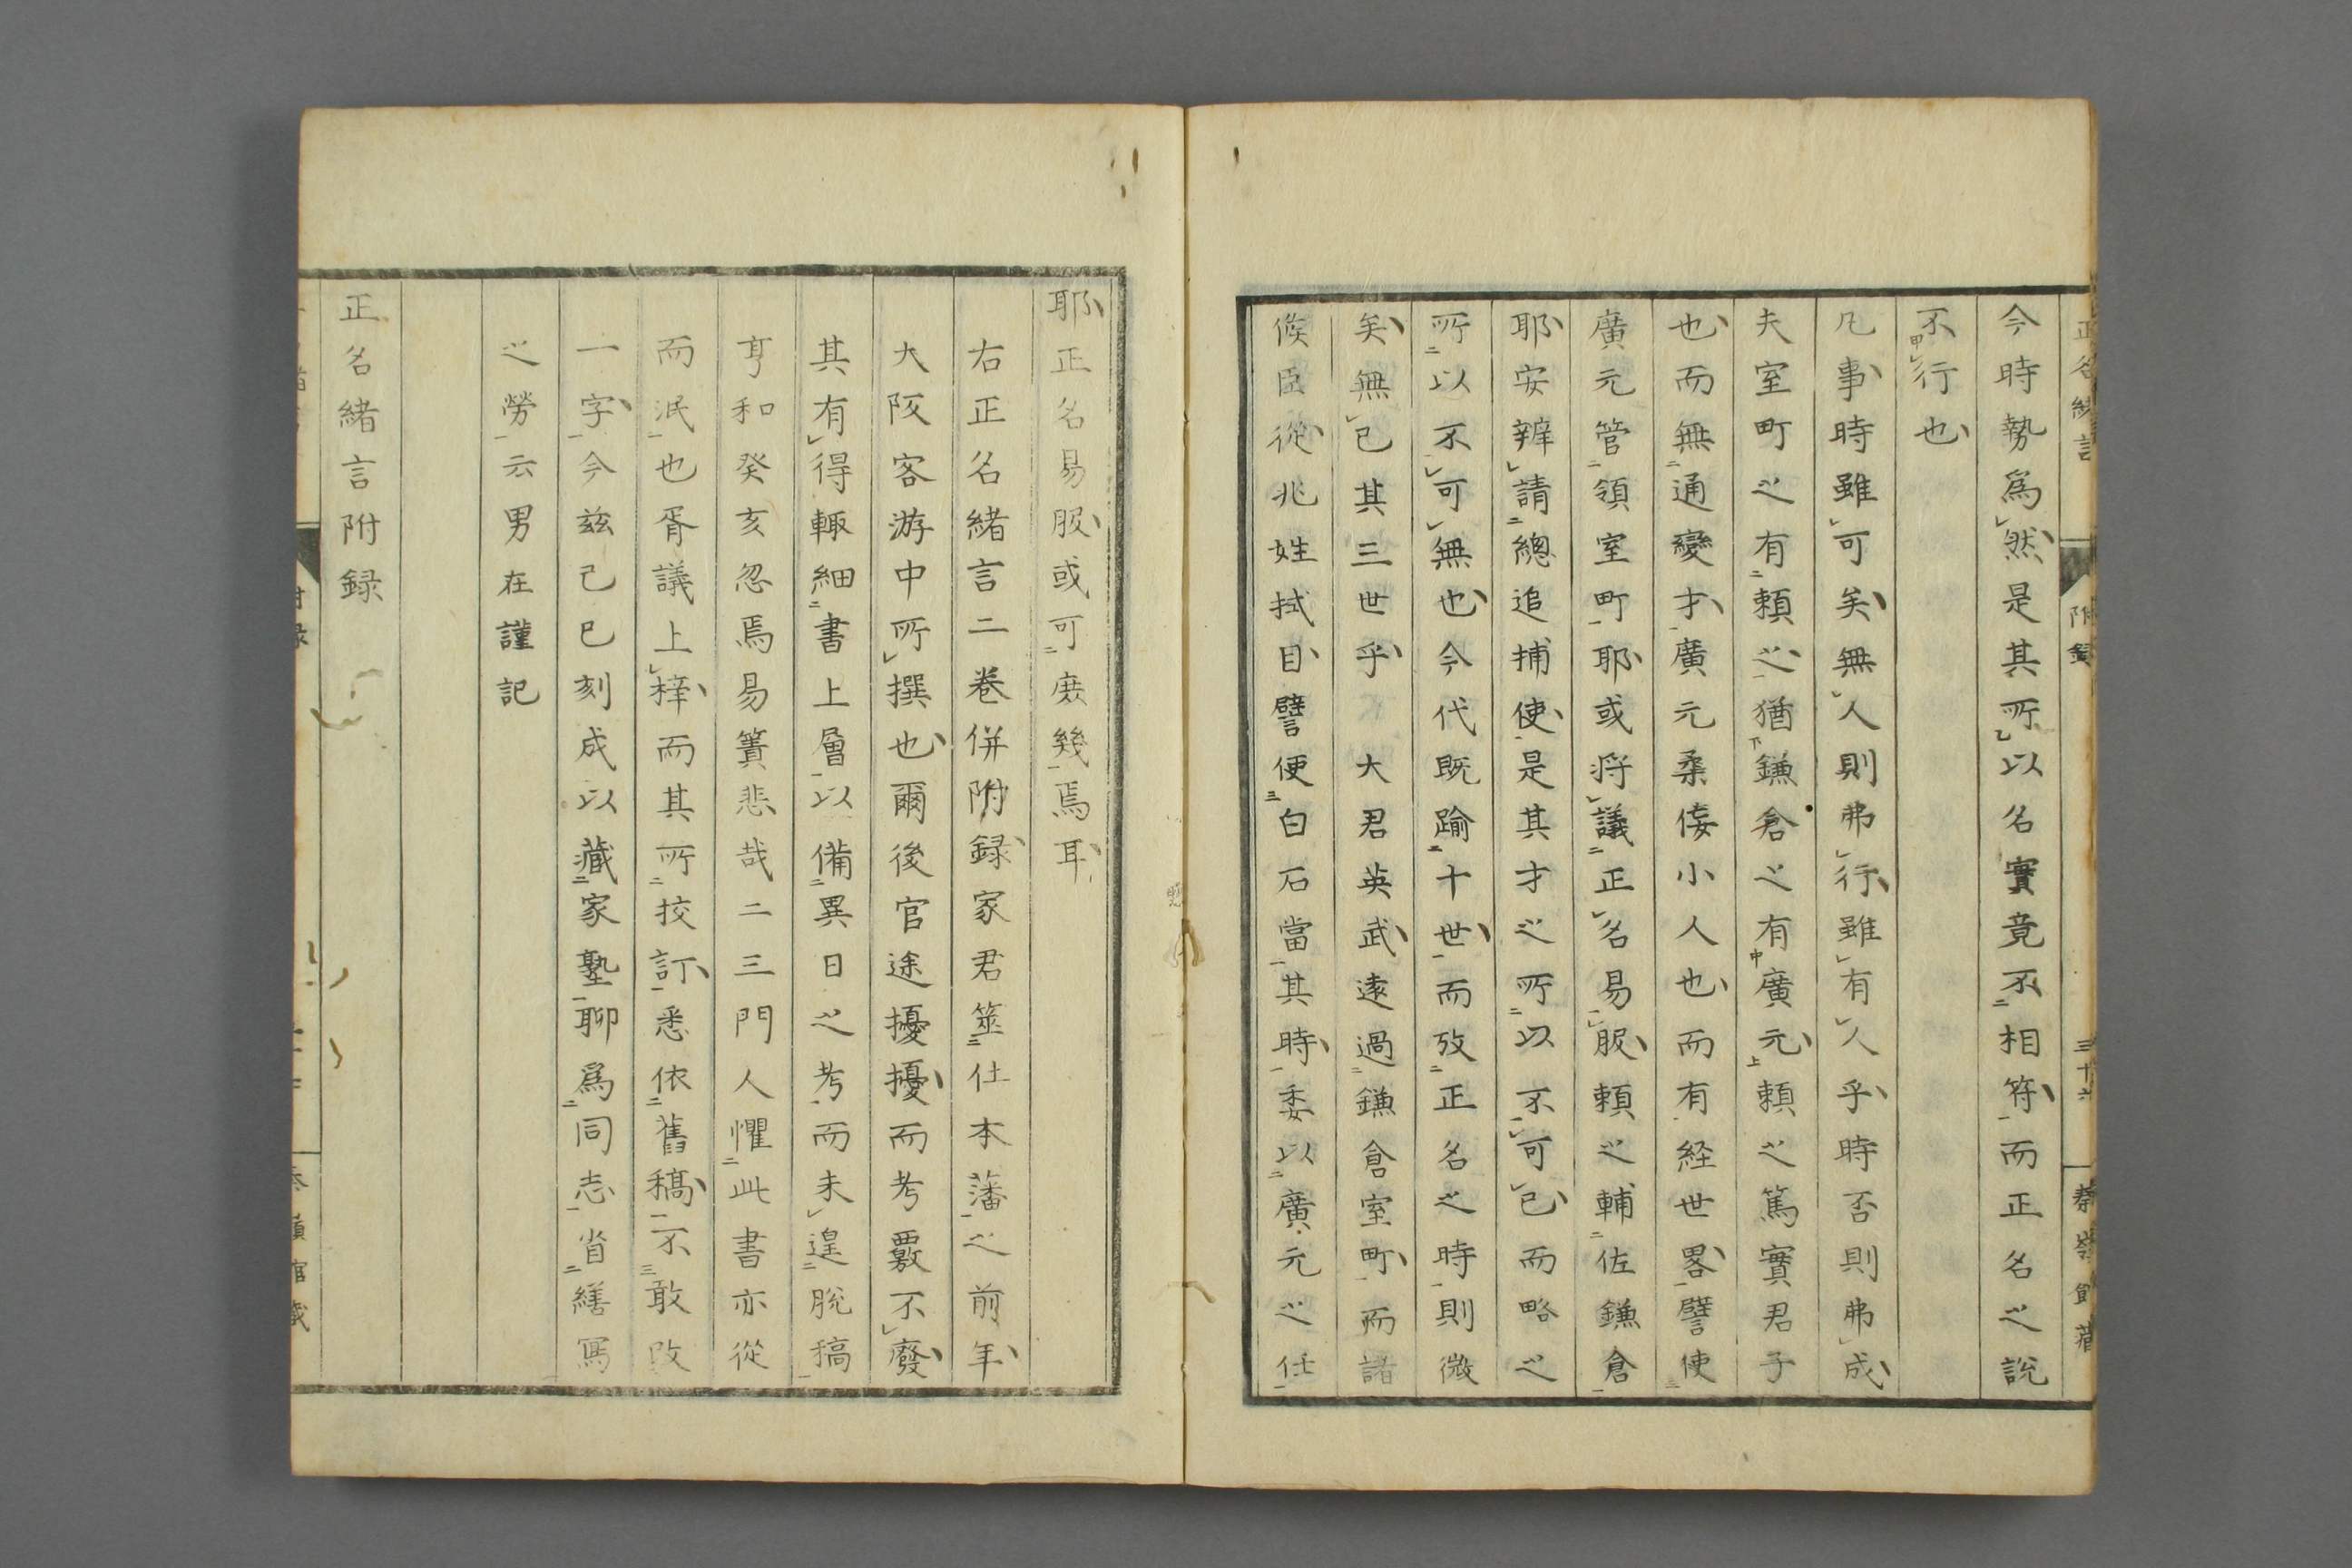 今時勢爲然是其所以名實竟不相符而正名之說
不行也
凡事時雖可矣無人則弗行雖有人乎時否則弗成
夫室町之有頼之猶鎌倉之有廣元頼之篤實君子
也而無通變才廣元桑倭小人也而有経世畧譬使
廣元管領室町耶或将議正名易服頼之輔佐鎌倉
耶安辨請總追捕使是其才之所以不可已而略之
所以不可無也今代既踰十世而攷正名之時則微
矣無已其三世乎　大君英武遠過鎌倉室町而諸
侯臣從兆姓拭目譬便白石當其時委以廣元之任
耶正名易服或可庶幾焉耳
右正名緒言二巻併附録家君筮仕本藩之前年
大阪客游中所撰也爾後官途擾擾而考覈不廢
其有得輙細書上層以備異日之考而未遑脫稿
享和癸亥忽焉易簀悲哉二三門人懼此書亦從
而泯也胥議上梓而其所挍訂悉依舊稿不敢改
一字今茲己巳刻成以藏家塾聊爲同志省繕寫
之勞云男在謹記
正名緒言附録
附録
三十六